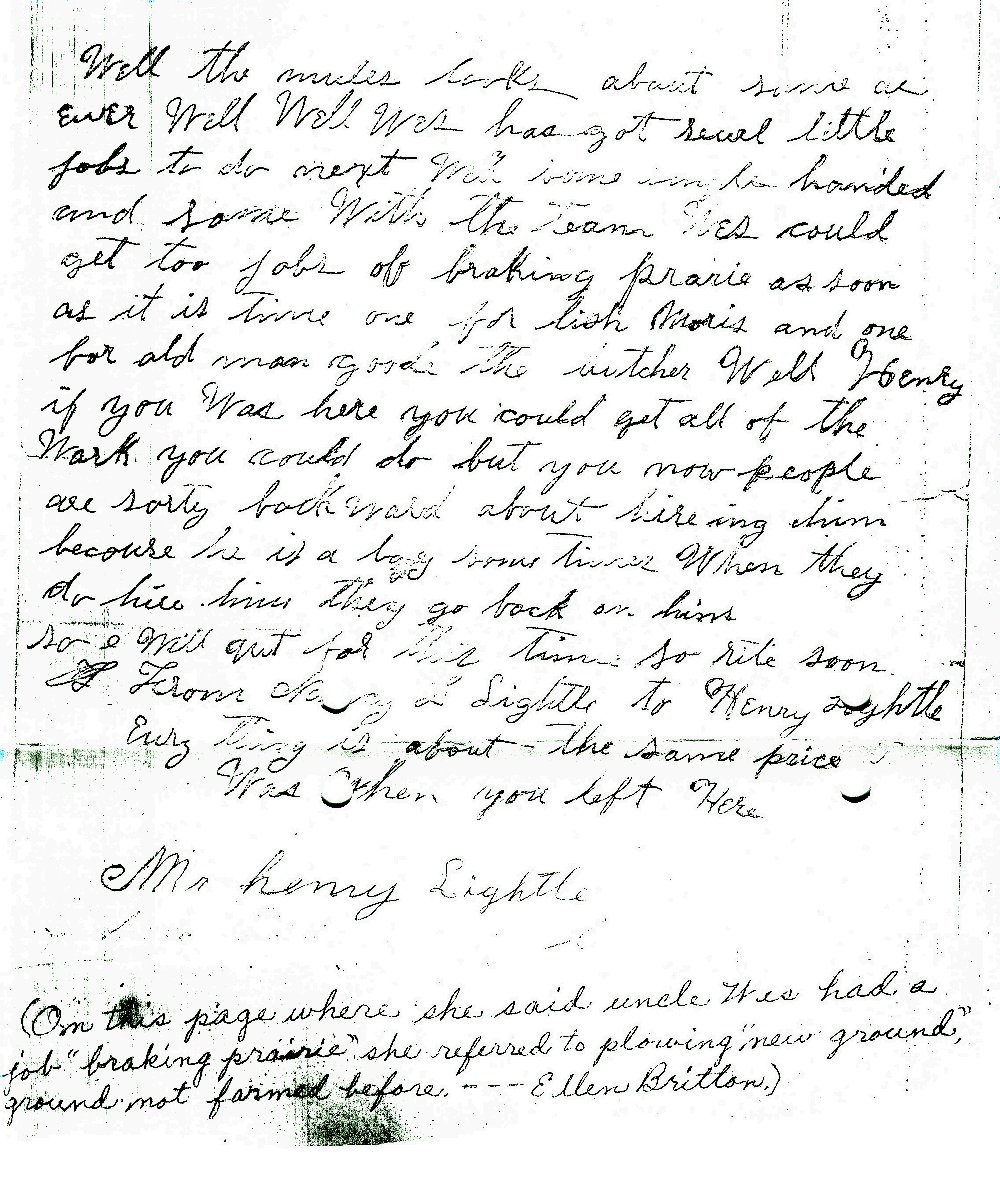 Well the mules looks about same as
ever Well Well Wes has got sevel little
jobs to do next Well some single handed
and some With the Team Wes could
get too jobs of braking prarie as soon
as it is time one for lish Moris and one
for old man goode the butcher Well Henry
if you Was here you could get all of the
Work you could do but you now people
are sorty backward about hire ing him
becouse he is a boy some times When they
do hire him they go back on him
so Will quit for this time so rite soon
From Lightle to Henry Lyghtle
Evry thing is about the same price
Was When you left Here
Mr henry Lightle
(On this page where she said uncle Wes had a
job "braking prairie" she referred to plowing "new ground",
ground not farmed before. --- Ellen Britton.)